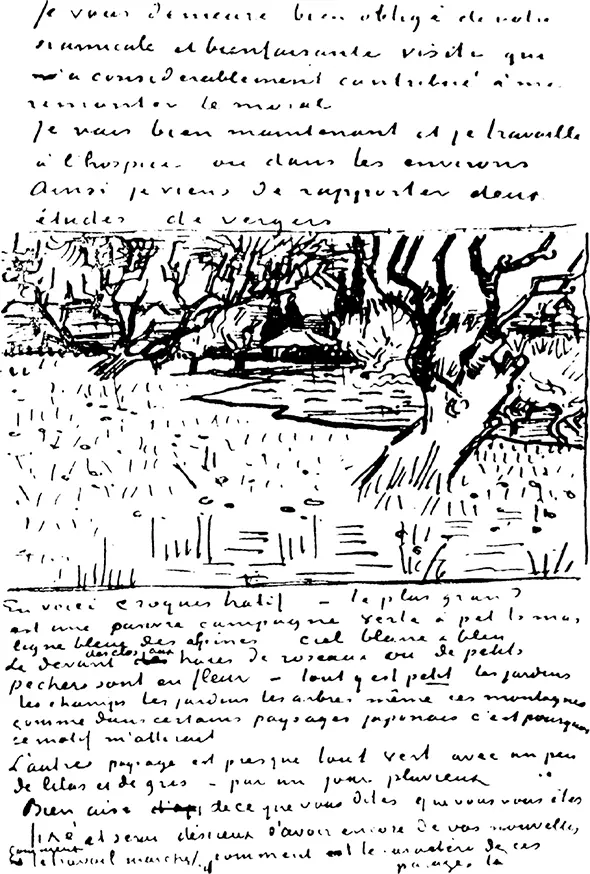 Je vous demeure bien obligé de votre
si amicale et bienfaisante visite que
m'a considérablement contribué à me
remonter le moral
Je vais bien maintenant et je travaille
à l'hospice ou dans les environs
Ainsi je viens de rapporter deux
études de vergers
En voici croquis hatif – le plus grand
est une pauvre campagne verte à petits mas
ligne bleue des alpines ciel blanc & bleu
Le devant des clos aux haies de roseaux ou de petits
pechers sont en fleur – tout y est petit les jardins
les champs les jardins les arbres même ces montagnes
comme dans certains paysages japonais c'est pourquoi
ce motif m'attirait
L'autre paysage est presque tout vert avec un peu
de lilas et de gris – par un jour pluvieux
Bien aise de ce que vous dites que vous vous êtes
fixé et serai désireux d'avoir encore de vos nouvelles
comment le travail marche, comment est le caractère de ces
parages là